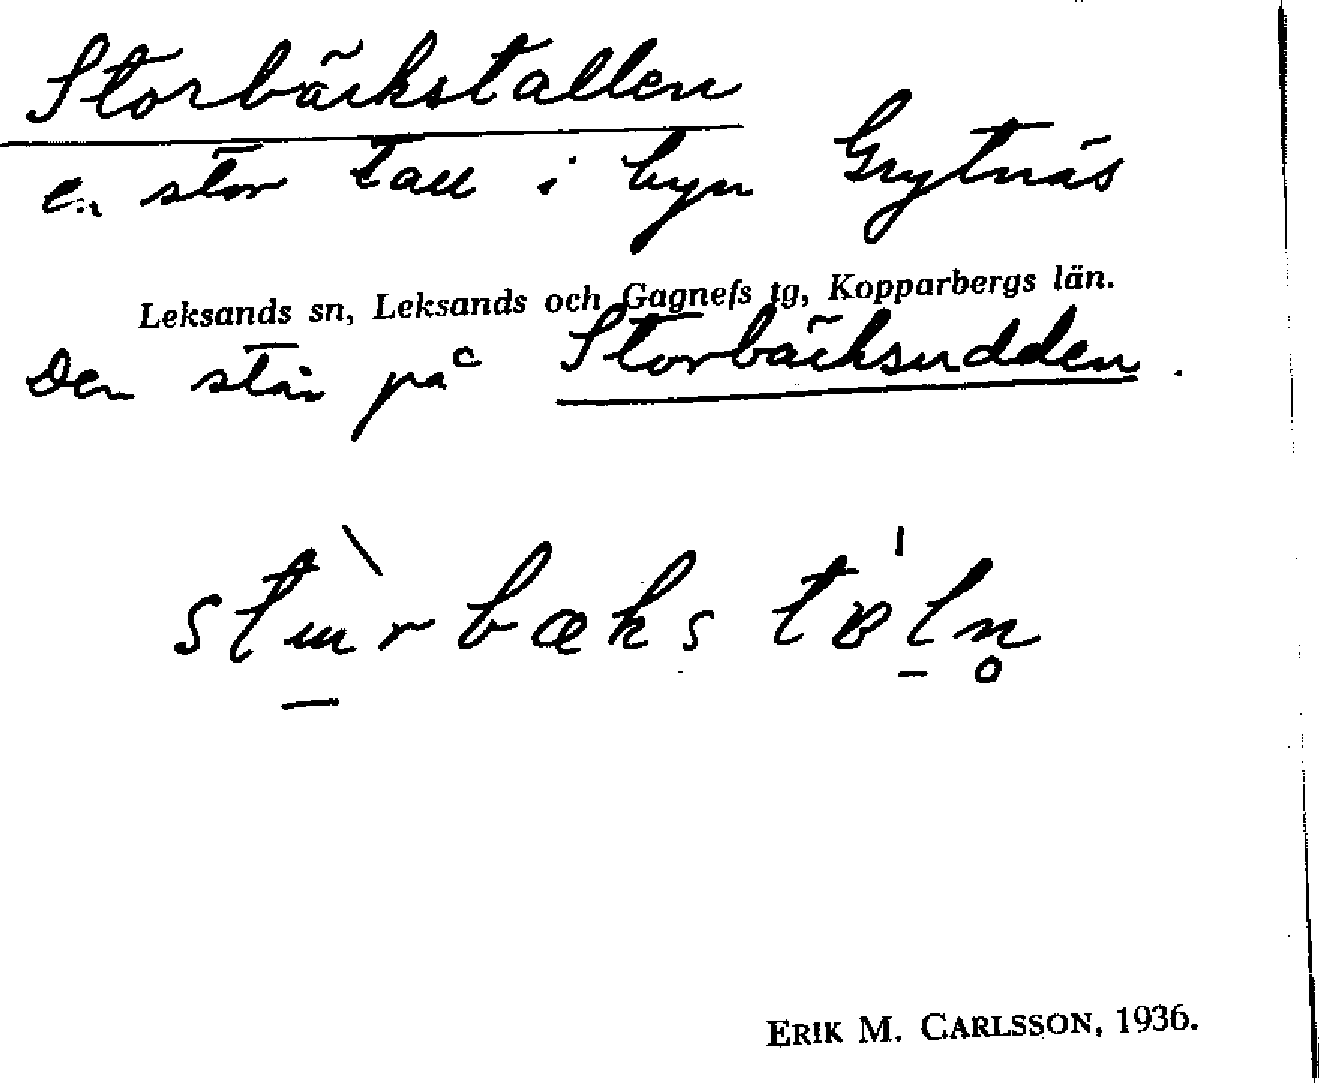 Storbäckstallen
en stor tall i byn Grytnäs
Leksands sn, Leksands och Gagnefs tg, Kopparbergs län.
Den står på Storbäcksudden.
ERIK M. CARLSSON, 1936.